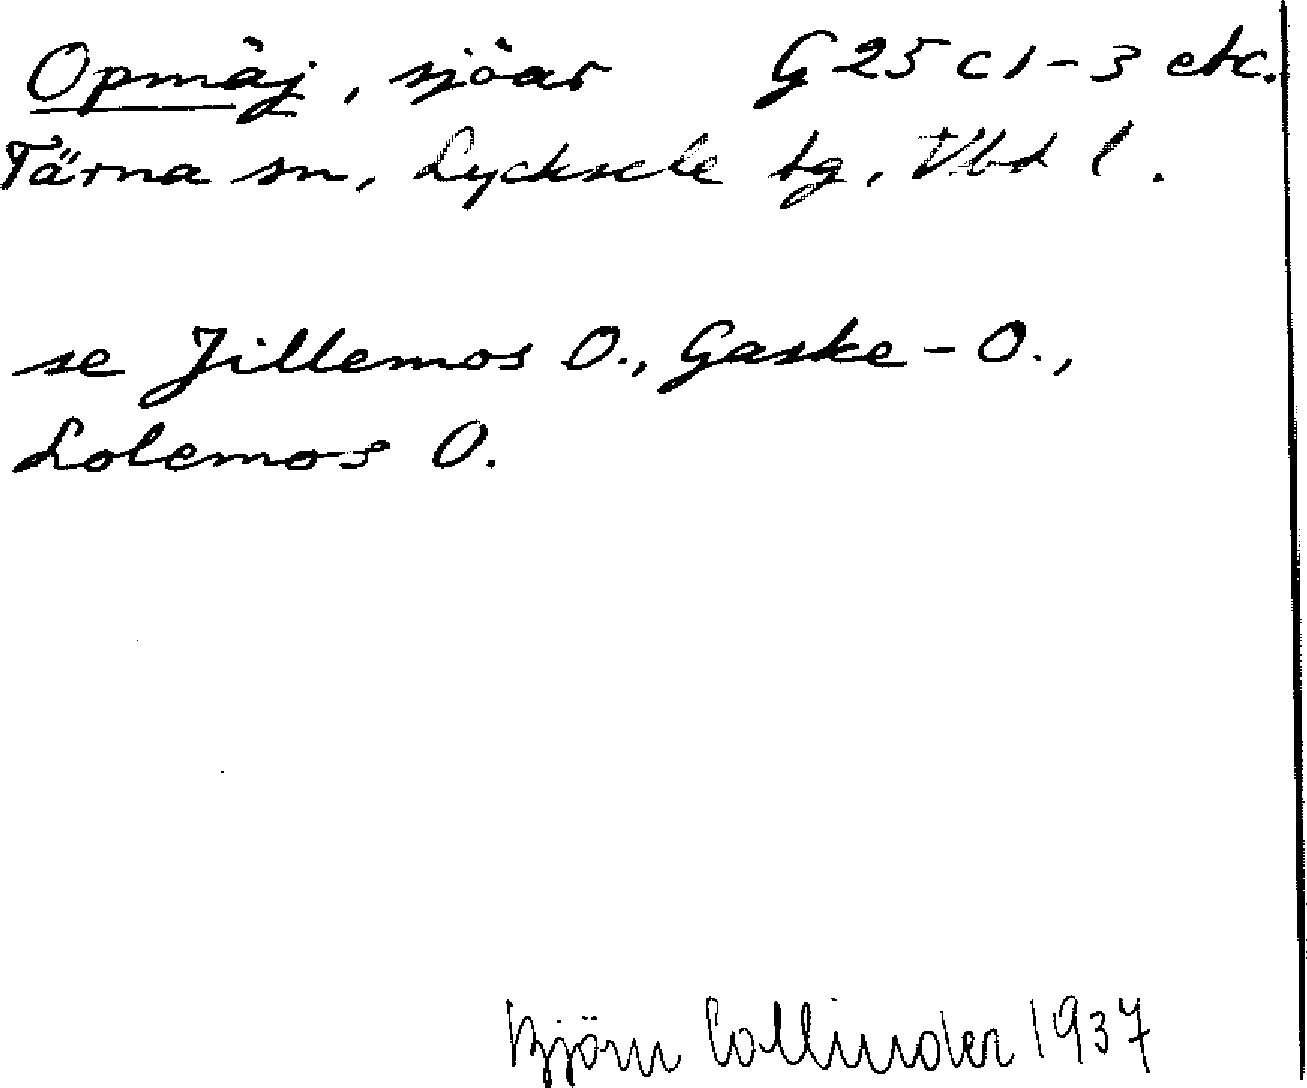 Opmäj, sjöar G 25 c 1-3 etc.
Tärna sn, Lycksele tg, Vbd l.
se Jillemos O., Gaske-O.,
Lolemos O.
Björn Collinder 1937